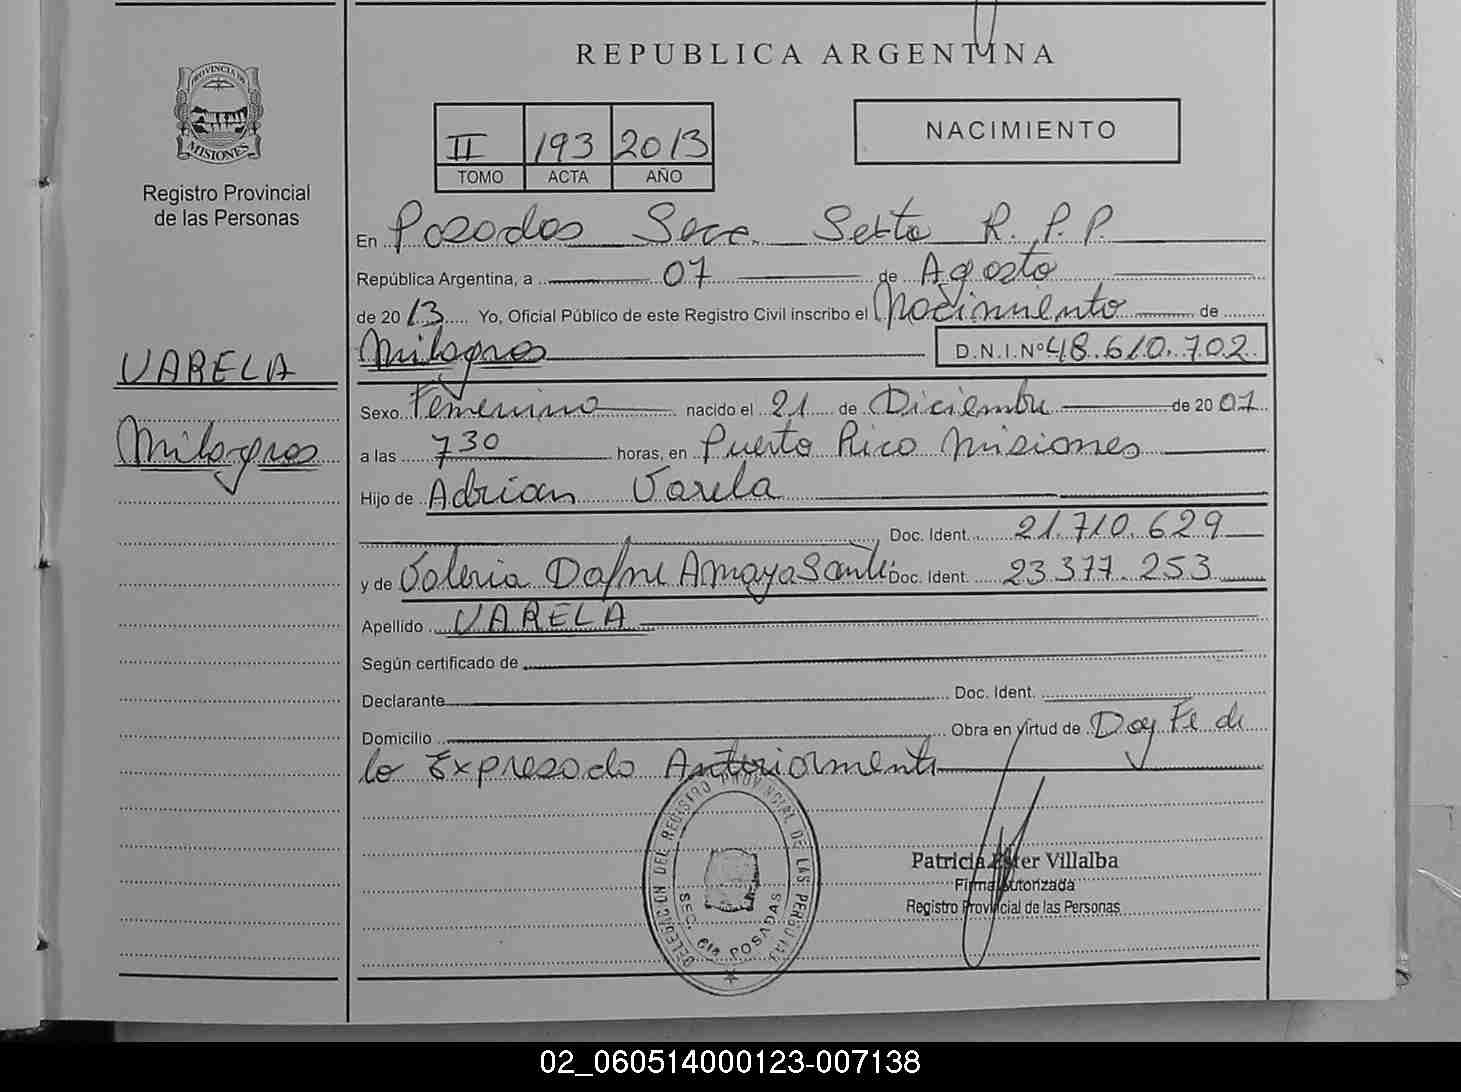 REPUBLICA ARGENTINA
PROVINCIA DE
MISIONES
Registro Provincial
de las Personas
II 193 2013
TOMO ACTA AÑO
NACIMIENTO
En Posadas Secc. Sexta R.P.P.
República Argentina, a 07 de Agosto
de 2013 Yo, Oficial Público de este Registro Civil inscribo el Nacimiento de
Milagros D.N.I. Nº 48.610.702
VARELA
Milagros
Sexo Femenino nacido el 21 de Diciembre de 2007
a las 730 horas, en Puerto Rico Misiones
Hijo de Adrian Varela
Doc. Ident. 21.710.629
y de Valeria Dafne Amaya Doc. Ident. 23.377.253
Apellido VARELA
Según certificado de
Declarante Doc. Ident.
Domicilio Obra en virtud de Doy Fe de
lo Expresado Anteriormente
DELEGACION DEL REGISTRO PROVINCIAL DE LAS PERSONAS
SEC. 6ta POSADAS
Patricia Ester Villalba
Firma Autorizada
Registro Provincial de las Personas
02_060514000123-007138